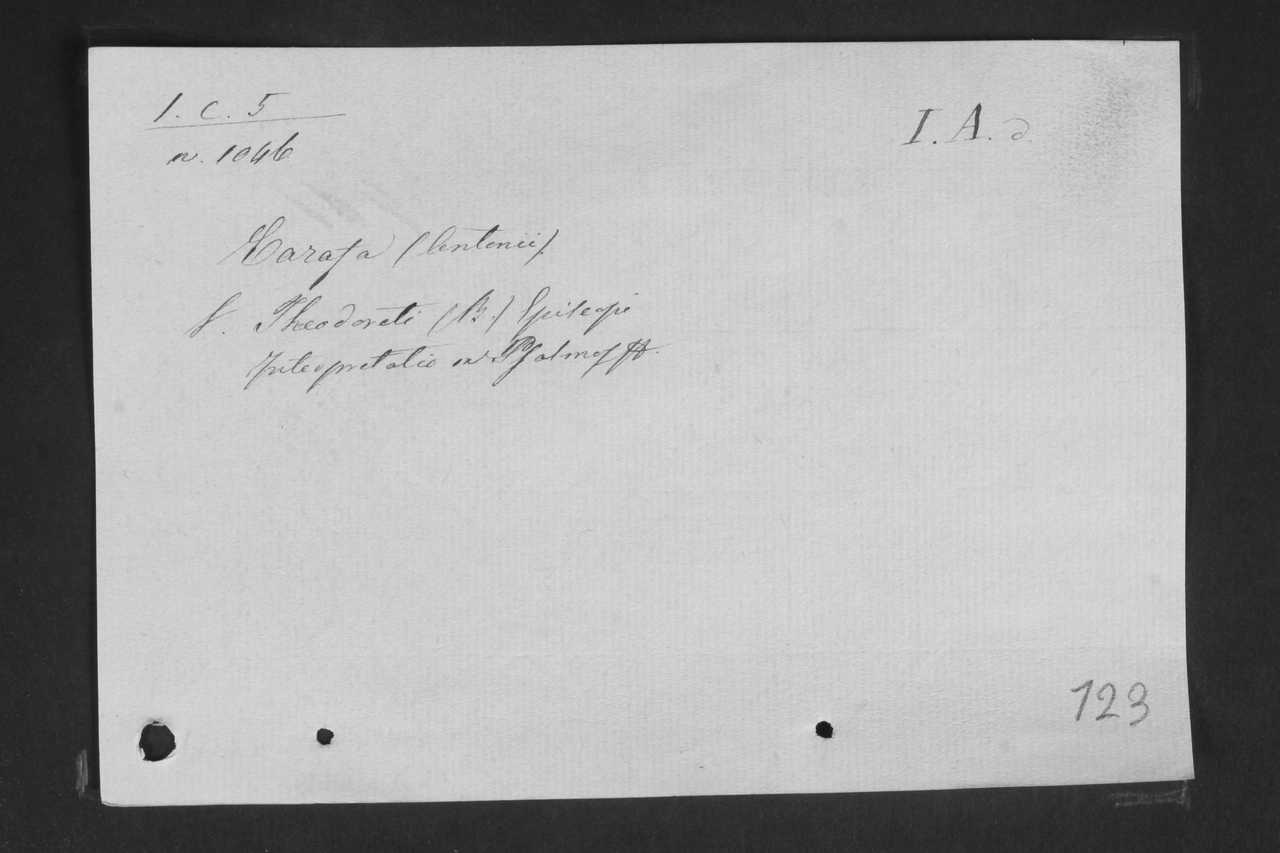 I. C. 5
n. 1046
I. A. d
Carafa (Antonii).
v. Theodoreti (B.) Episcopi
Interpretatio in Psalmos
123